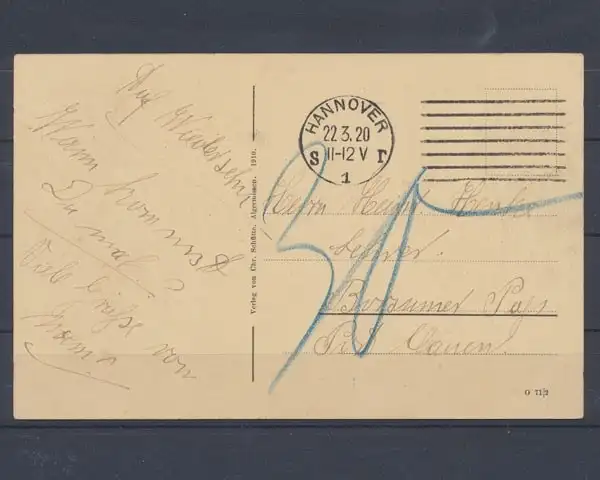 Auf Wiedersehn
Wann kommst
Du mal?
Viele Grüße von
Verlag von Chr. Schütte, Algermissen. 1910.
HANNOVER
22.3.20
11-12 V
S
1
Herrn Heinr
Lehrer.
Borsumer Pass
O 71/2